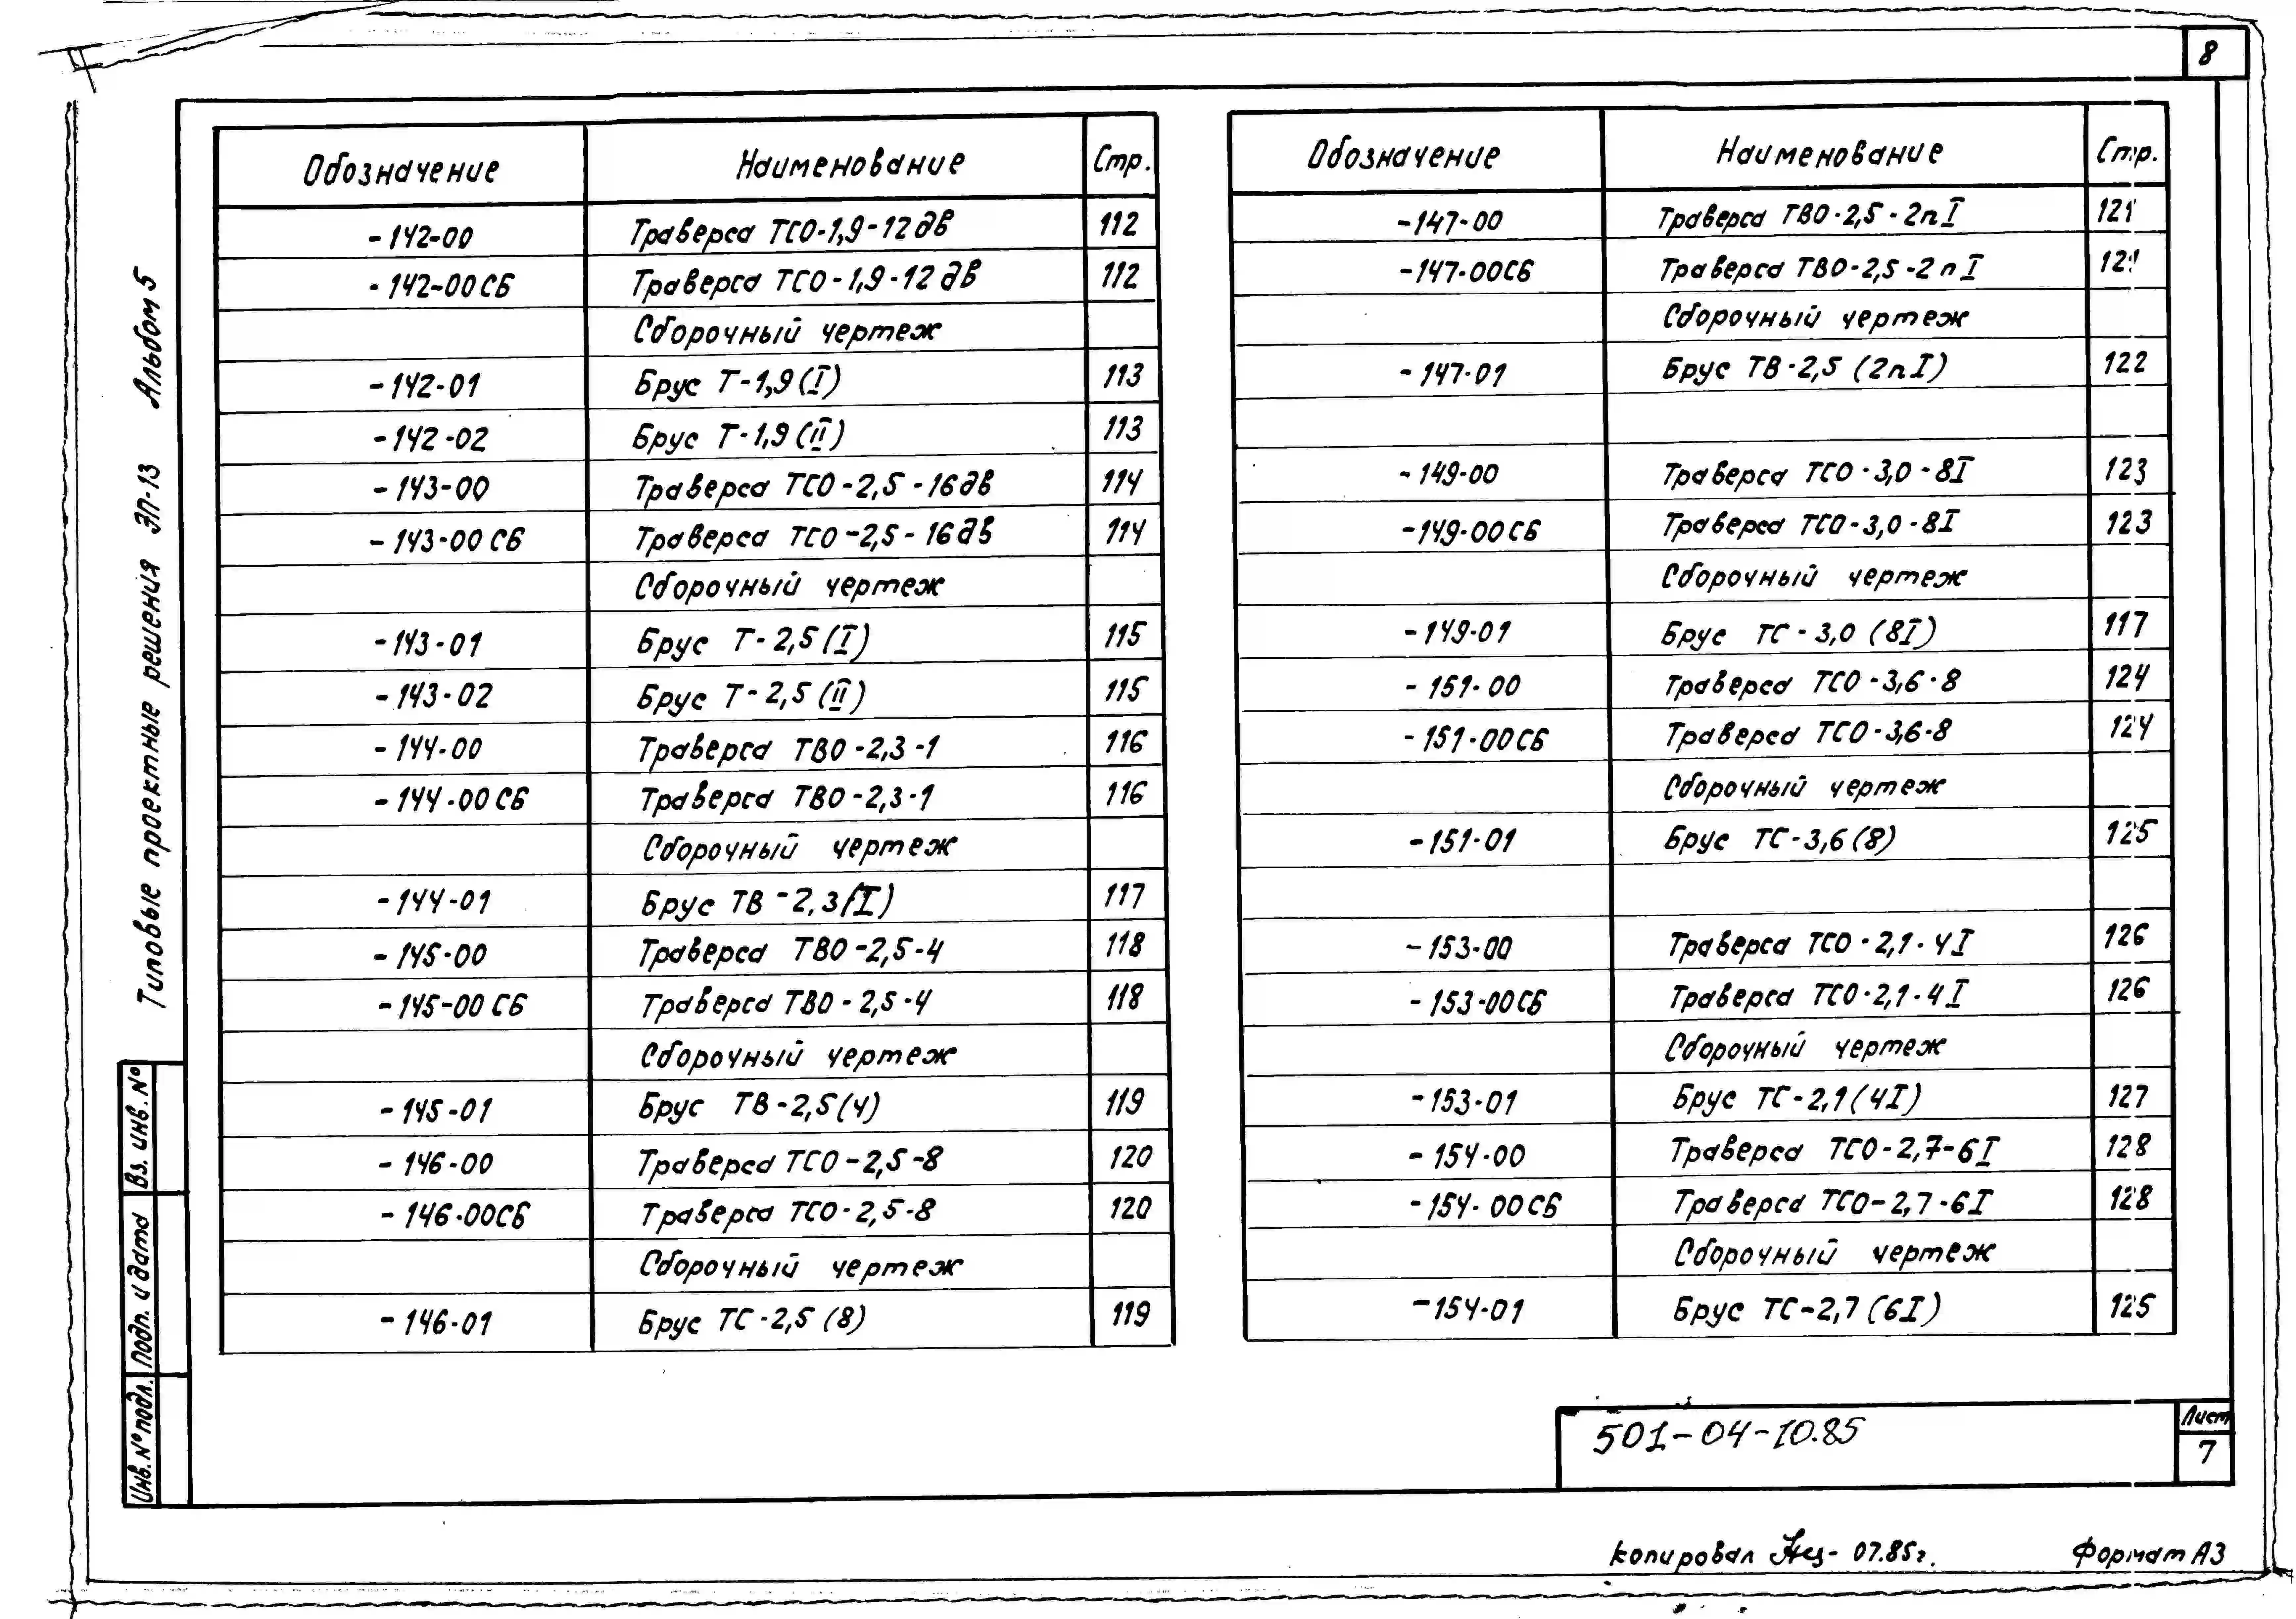 8
Типовые проектные решения ЭП-13 Альбом 5
Обозначение Наименование Стр.
-142-00 Траверса ТСО-1,9-12дв 112
-142-00СБ Траверса ТСО-1,9-12дв 112
Сборочный чертеж
-142-01 Брус Т-1,9(I) 113
-142-02 Брус Т-1,9(II) 113
-143-00 Траверса ТСО-2,5-16дв 114
-143-00СБ Траверса ТСО-2,5-16дв 114
Сборочный чертеж
-143-01 Брус Т-2,5(I) 115
-143-02 Брус Т-2,5(II) 115
-144-00 Траверса ТВО-2,3-1 116
-144-00СБ Траверса ТВО-2,3-1 116
Сборочный чертеж
-144-01 Брус ТВ-2,3(I) 117
-145-00 Траверса ТВО-2,5-4 118
-145-00СБ Траверса ТВО-2,5-4 118
Сборочный чертеж
-145-01 Брус ТВ-2,5(4) 119
-146-00 Траверса ТСО-2,5-8 120
-146-00СБ Траверса ТСО-2,5-8 120
Сборочный чертеж
-146-01 Брус ТС-2,5(8) 119
Обозначение Наименование Стр.
-147-00 Траверса ТВО-2,5-2пI 121
-147-00СБ Траверса ТВО-2,5-2пI 121
Сборочный чертеж
-147-01 Брус ТВ-2,5 (2пI) 122
-149-00 Траверса ТСО-3,0-8I 123
-149-00СБ Траверса ТСО-3,0-8I 123
Сборочный чертеж
-149-01 Брус ТС-3,0 (8I) 117
-151-00 Траверса ТСО-3,6-8 124
-151-00СБ Траверса ТСО-3,6-8 124
Сборочный чертеж
-151-01 Брус ТС-3,6(8) 125
-153-00 Траверса ТСО-2,1-4I 126
-153-00СБ Траверса ТСО-2,1-4I 126
Сборочный чертеж
-153-01 Брус ТС-2,1(4I) 127
-154-00 Траверса ТСО-2,7-6I 128
-154-00СБ Траверса ТСО-2,7-6I 128
Сборочный чертеж
-154-01 Брус ТС-2,7(6I) 125
Вз. инв. №
Подп. и дата
Инв. № подл.
501-04-10.85
Лист
7
копировал 07.85г. Формат А3